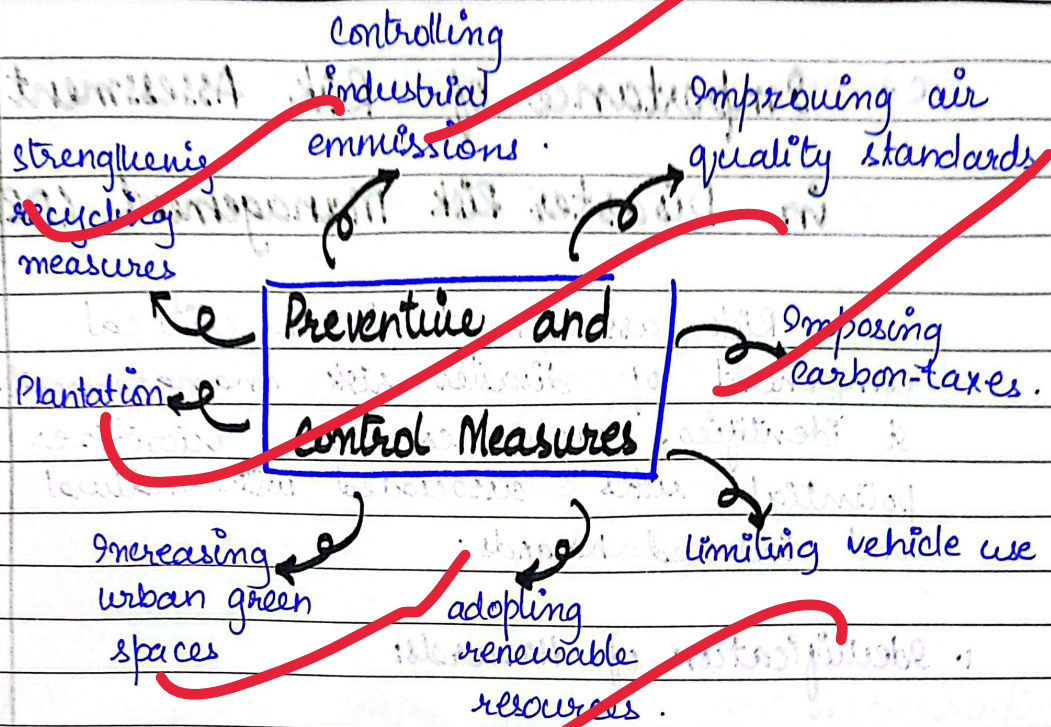 controlling
industrial
emmissions.
Improving air
quality standards
strengthenig
recycling
measures
Preventive and
control Measures
Imposing
carbon-taxes.
Plantation
limiting vehicle use
Increasing
urban green
spaces
adopting
renewable
resources.